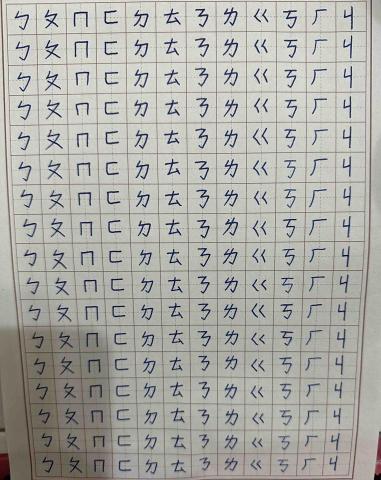 ㄅ ㄆ ㄇ ㄈ ㄉ ㄊ ㄋ ㄌ ㄍ ㄎ ㄏ ㄐ
ㄅ ㄆ ㄇ ㄈ ㄉ ㄊ ㄋ ㄌ ㄍ ㄎ ㄏ ㄐ
ㄅ ㄆ ㄇ ㄈ ㄉ ㄊ ㄋ ㄌ ㄍ ㄎ ㄏ ㄐ
ㄅ ㄆ ㄇ ㄈ ㄉ ㄊ ㄋ ㄌ ㄍ ㄎ ㄏ ㄐ
ㄅ ㄆ ㄇ ㄈ ㄉ ㄊ ㄋ ㄌ ㄍ ㄎ ㄏ ㄐ
ㄅ ㄆ ㄇ ㄈ ㄉ ㄊ ㄋ ㄌ ㄍ ㄎ ㄏ ㄐ
ㄅ ㄆ ㄇ ㄈ ㄉ ㄊ ㄋ ㄌ ㄍ ㄎ ㄏ ㄐ
ㄅ ㄆ ㄇ ㄈ ㄉ ㄊ ㄋ ㄌ ㄍ ㄎ ㄏ ㄐ
ㄅ ㄆ ㄇ ㄈ ㄉ ㄊ ㄋ ㄌ ㄍ ㄎ ㄏ ㄐ
ㄅ ㄆ ㄇ ㄈ ㄉ ㄊ ㄋ ㄌ ㄍ ㄎ ㄏ ㄐ
ㄅ ㄆ ㄇ ㄈ ㄉ ㄊ ㄋ ㄌ ㄍ ㄎ ㄏ ㄐ
ㄅ ㄆ ㄇ ㄈ ㄉ ㄊ ㄋ ㄌ ㄍ ㄎ ㄏ ㄐ
ㄅ ㄆ ㄇ ㄈ ㄉ ㄊ ㄋ ㄌ ㄍ ㄎ ㄏ ㄐ
ㄅ ㄆ ㄇ ㄈ ㄉ ㄊ ㄋ ㄌ ㄍ ㄎ ㄏ ㄐ
ㄅ ㄆ ㄇ ㄈ ㄉ ㄊ ㄋ ㄌ ㄍ ㄎ ㄏ ㄐ
ㄅ ㄆ ㄇ ㄈ ㄉ ㄊ ㄋ ㄌ ㄍ ㄎ ㄏ ㄐ
ㄅ ㄆ ㄇ ㄈ ㄉ ㄊ ㄋ ㄌ ㄍ ㄎ ㄏ ㄐ